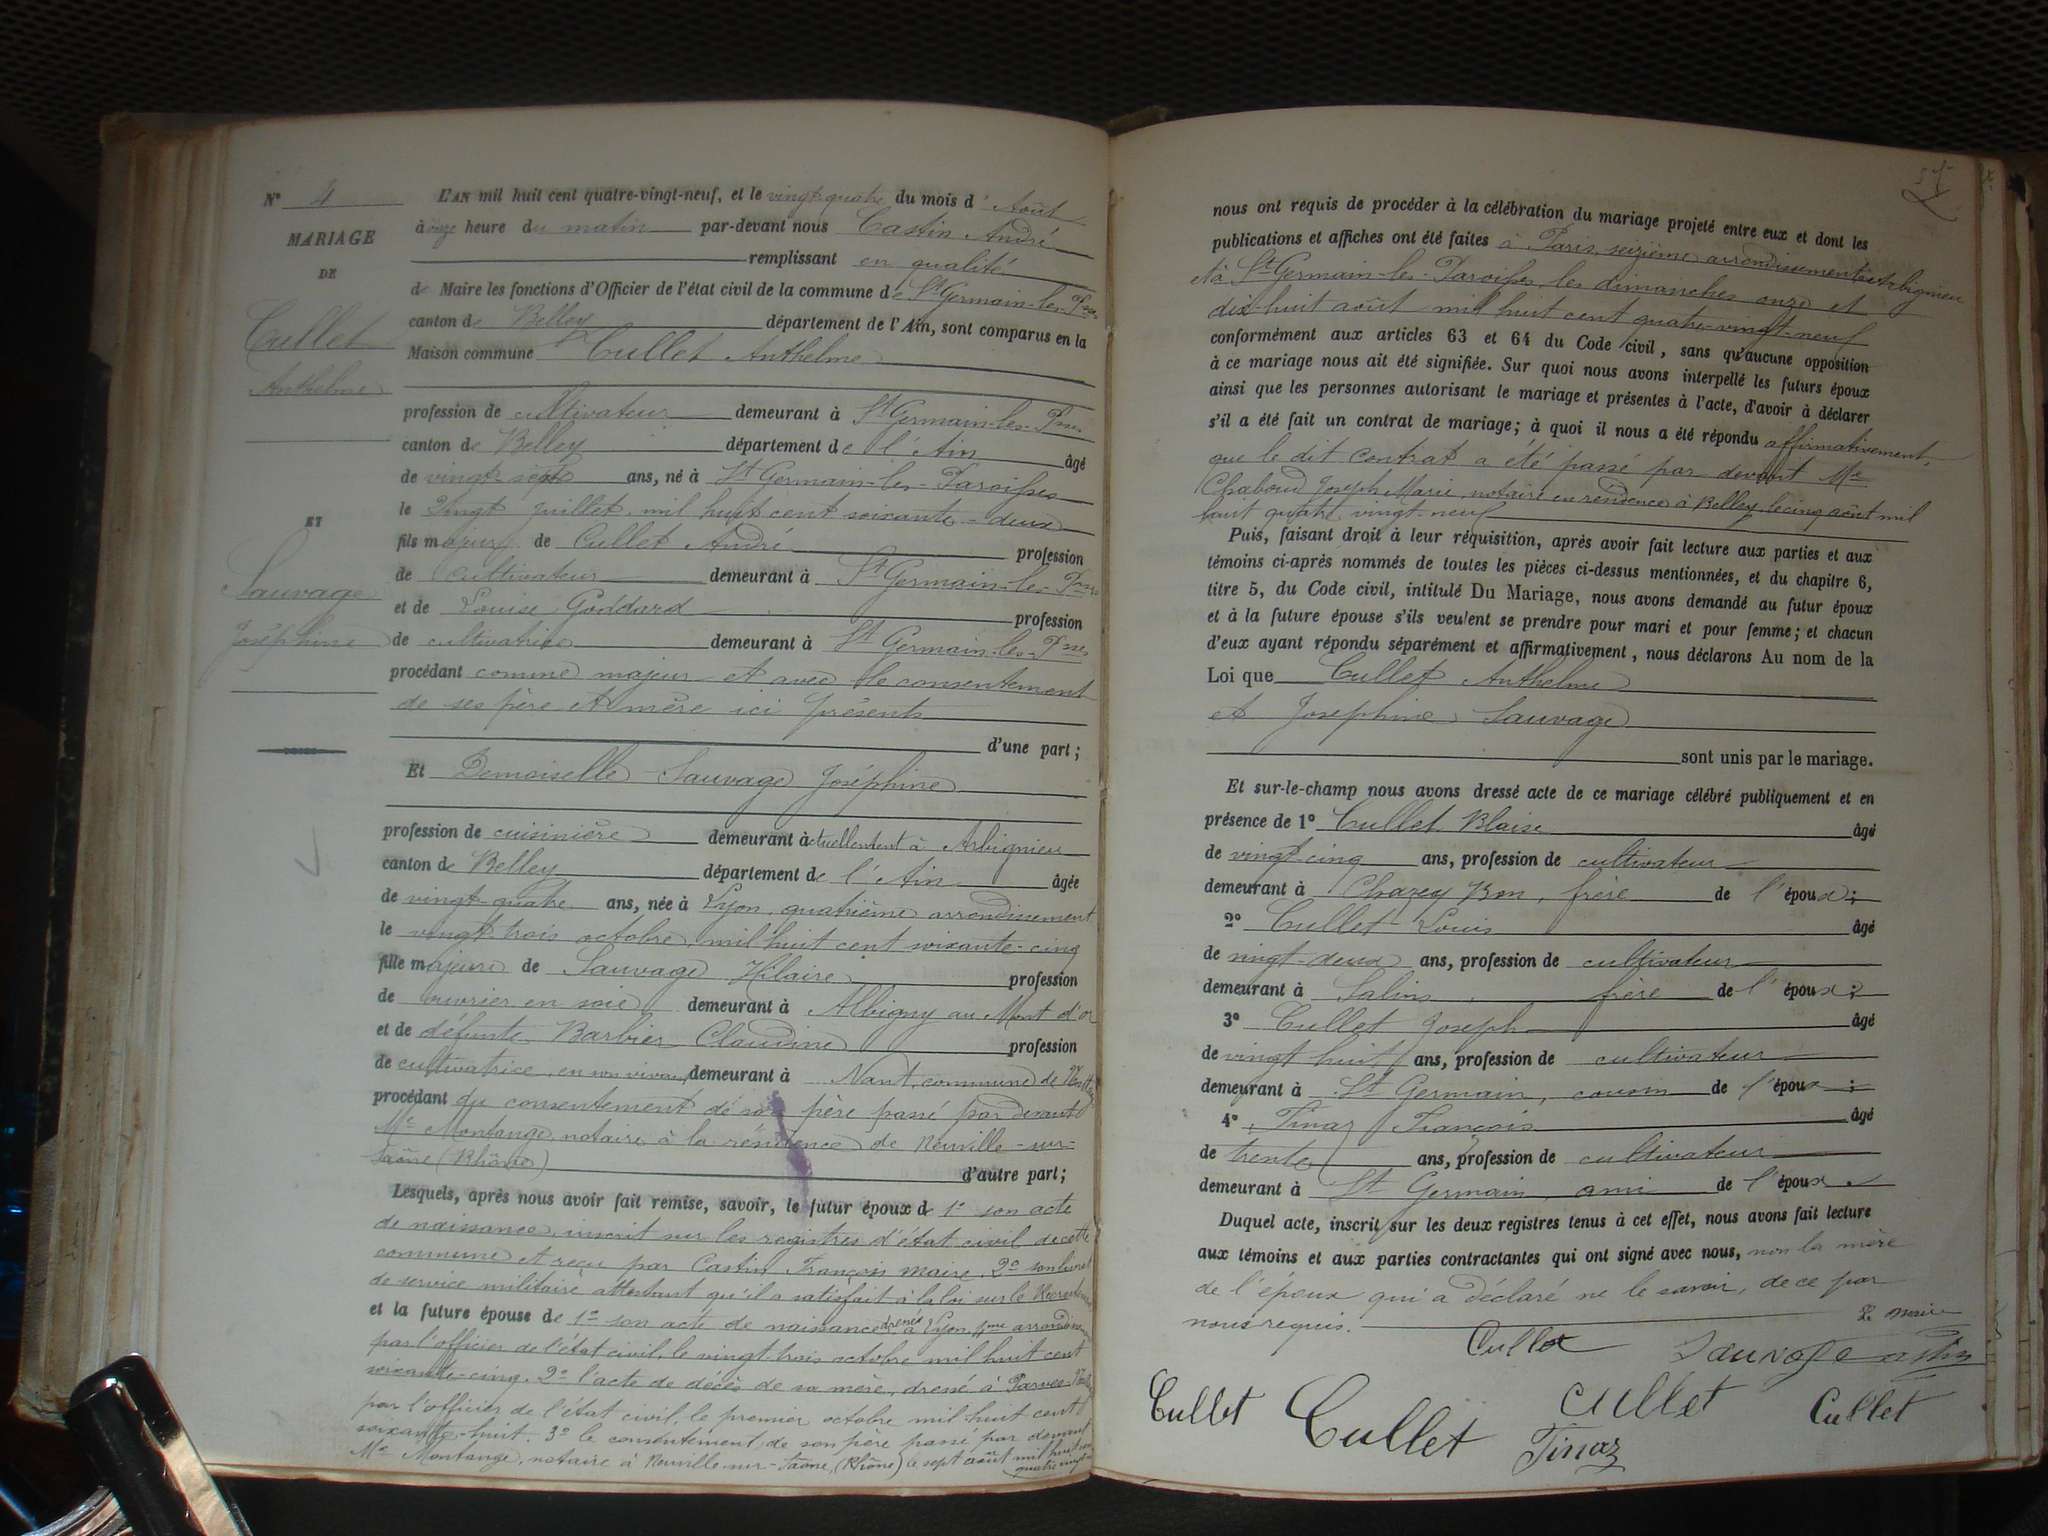 N° 4
MARIAGE
DE
Cullet
Anthelme
ET
Sauvage
Joséphine
L'AN mil huit cent quatre-vingt-neuf, et le vingt-quatre du mois d' Août
à onze heure du matin par-devant nous Castin André
remplissant en qualité
de Maire les fonctions d'Officier de l'état civil de la commune de St Germain-les-Pses
canton de Belley département de l'Ain, sont comparus en la
Maison commune Cullet Anthelme
profession de cultivateur demeurant à St Germain-les-Pses
canton de Belley département de l'Ain âgé
de vingt-sept ans, né à St Germain-les-Paroisses
le Vingt juillet, mil huit cent soixante-deux
fils majeur de Cullet André profession
de cultivateur demeurant à St Germain-les-Pses
et de Louise Goddard profession
de cultivatrice demeurant à St Germain-les-Pses
procédant comme majeur et avec le consentement
de ses père et mère ici présents
d'une part;
Et Demoiselle Sauvage Joséphine
profession de cuisinière demeurant actuellement à Arbignieu
canton de Belley département de l'Ain âgée
de vingt-quatre ans, née à Lyon, quatrième arrondissement
le vingt-trois octobre, mil huit cent soixante-cinq
fille majeure de Sauvage Hilaire profession
de ouvrier en soie demeurant à Albigny au Mont d'or
et de défunte Barbier Claudine profession
de cultivatrice, en son vivant, demeurant à Nant, commune de
procédant du consentement de son père passé par devant
Me Montange, notaire à la résidence de Neuville-sur-
Saône (Rhône) d'autre part;
Lesquels, après nous avoir fait remise, savoir, le futur époux de 1° son acte
de naissance, inscrit sur les registres d'état civil de cette
commune et reçu par Castin François maire. 2° son livret
de service militaire attestant qu'il a satisfait à la loi sur le Recrutement
et la future épouse de 1° son acte de naissance dressé à Lyon, 4me arrondissement
par l'officier de l'état civil, le vingt-trois octobre mil huit cent
soixante-cinq. 2° l'acte de décès de sa mère, dressé à Parves
par l'officier de l'état civil, le premier octobre mil huit cent
soixante-huit. 3° le consentement de son père passé par devant
Me Montange, notaire à Neuville-sur-Saône, (Rhône) le sept août mil huit cent
quatre vingt
nous ont requis de procéder à la célébration du mariage projeté entre eux et dont les
publications et affiches ont été faites à Paris, seizième arrondissement, à Arbignieu
et à St Germain-les-Paroisses, les dimanches onze et
dix-huit août mil huit cent quatre-vingt-neuf
conformément aux articles 63 et 64 du Code civil, sans qu'aucune opposition
à ce mariage nous ait été signifiée. Sur quoi nous avons interpellé les futurs époux
ainsi que les personnes autorisant le mariage et présentes à l'acte, d'avoir à déclarer
s'il a été fait un contrat de mariage; à quoi il nous a été répondu affirmativement,
que le dit contrat a été passé par devant Me
Chaboud Joseph Marie, notaire en résidence à Belley, le cinq août mil
huit quatre vingt neuf
Puis, faisant droit à leur réquisition, après avoir fait lecture aux parties et aux
témoins ci-après nommés de toutes les pièces ci-dessus mentionnées, et du chapitre 6,
titre 5, du Code civil, intitulé Du Mariage, nous avons demandé au futur époux
et à la future épouse s'ils veulent se prendre pour mari et pour femme; et chacun
d'eux ayant répondu séparément et affirmativement, nous déclarons Au nom de la
Loi que Cullet Anthelme
et Joséphine Sauvage
sont unis par le mariage.
Et sur-le-champ nous avons dressé acte de ce mariage célébré publiquement et en
présence de 1° Cullet Blaise âgé
de vingt-cinq ans, profession de cultivateur
demeurant à Chazey Bon, frère de l'époux;
2° Cullet Louis âgé
de vingt-deux ans, profession de cultivateur
demeurant à Salins, frère de l'époux;
3° Cullet Joseph âgé
de vingt huit ans, profession de cultivateur
demeurant à St Germain, cousin de l'époux;
4° Tinaz François âgé
de trente ans, profession de cultivateur
demeurant à St Germain, ami de l'époux
Duquel acte, inscrit sur les deux registres tenus à cet effet, nous avons fait lecture
aux témoins et aux parties contractantes qui ont signé avec nous, non la mère
de l'époux qui a déclaré ne le savoir, de ce par
nous requis.
Le maire
Cullet Sauvage Castin
Cullet Cullet Cullet Cullet
Tinaz